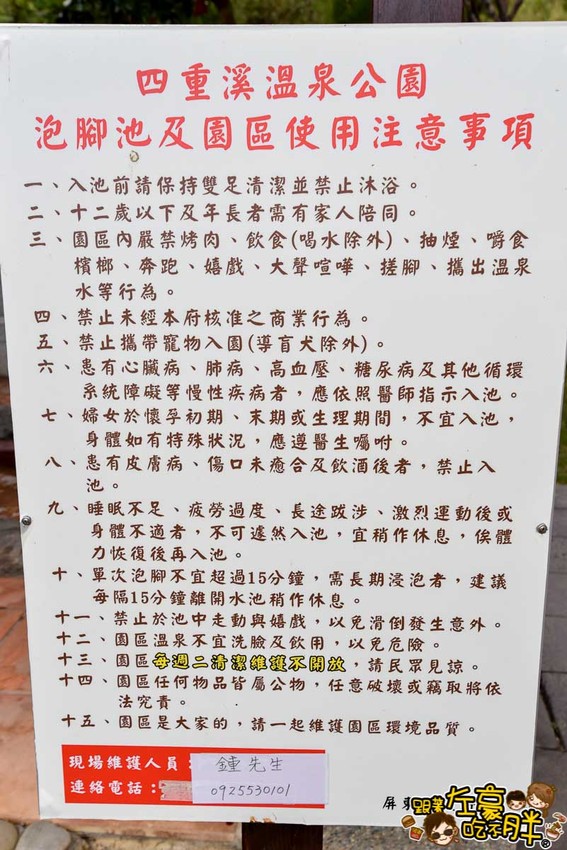 四重溪溫泉公園
泡腳池及園區使用注意事項
一、入池前請保持雙足清潔並禁止沐浴。
二、十二歲以下及年長者需有家人陪同。
三、園區內嚴禁烤肉、飲食(喝水除外)、抽煙、嚼食
檳榔、奔跑、嬉戲、大聲喧嘩、搓腳、攜出溫泉
水等行為。
四、禁止未經本府核准之商業行為。
五、禁止攜帶寵物入園(導盲犬除外)。
六、患有心臟病、肺病、高血壓、糖尿病及其他循環
系統障礙等慢性疾病者，應依照醫師指示入池。
七、婦女於懷孕初期、末期或生理期間，不宜入池，
身體如有特殊狀況，應遵醫生囑咐。
八、患有皮膚病、傷口未癒合及飲酒後者，禁止入
池。
九、睡眠不足、疲勞過度、長途跋涉、激烈運動後或
身體不適者，不可遽然入池，宜稍作休息，俟體
力恢復後再入池。
十、單次泡腳不宜超過15分鐘，需長期浸泡者，建議
每隔15分鐘離開水池稍作休息。
十一、禁止於池中走動與嬉戲，以免滑倒發生意外。
十二、園區溫泉不宜洗臉及飲用，以免危險。
十三、園區每週二清潔維護不開放，請民眾見諒。
十四、園區任何物品皆屬公物，任意破壞或竊取將依
法究責。
十五、園區是大家的，請一起維護園區環境品質。
現場維護人員：鍾先生
連絡電話：0925530101
屏東
跟著左豪吃不胖